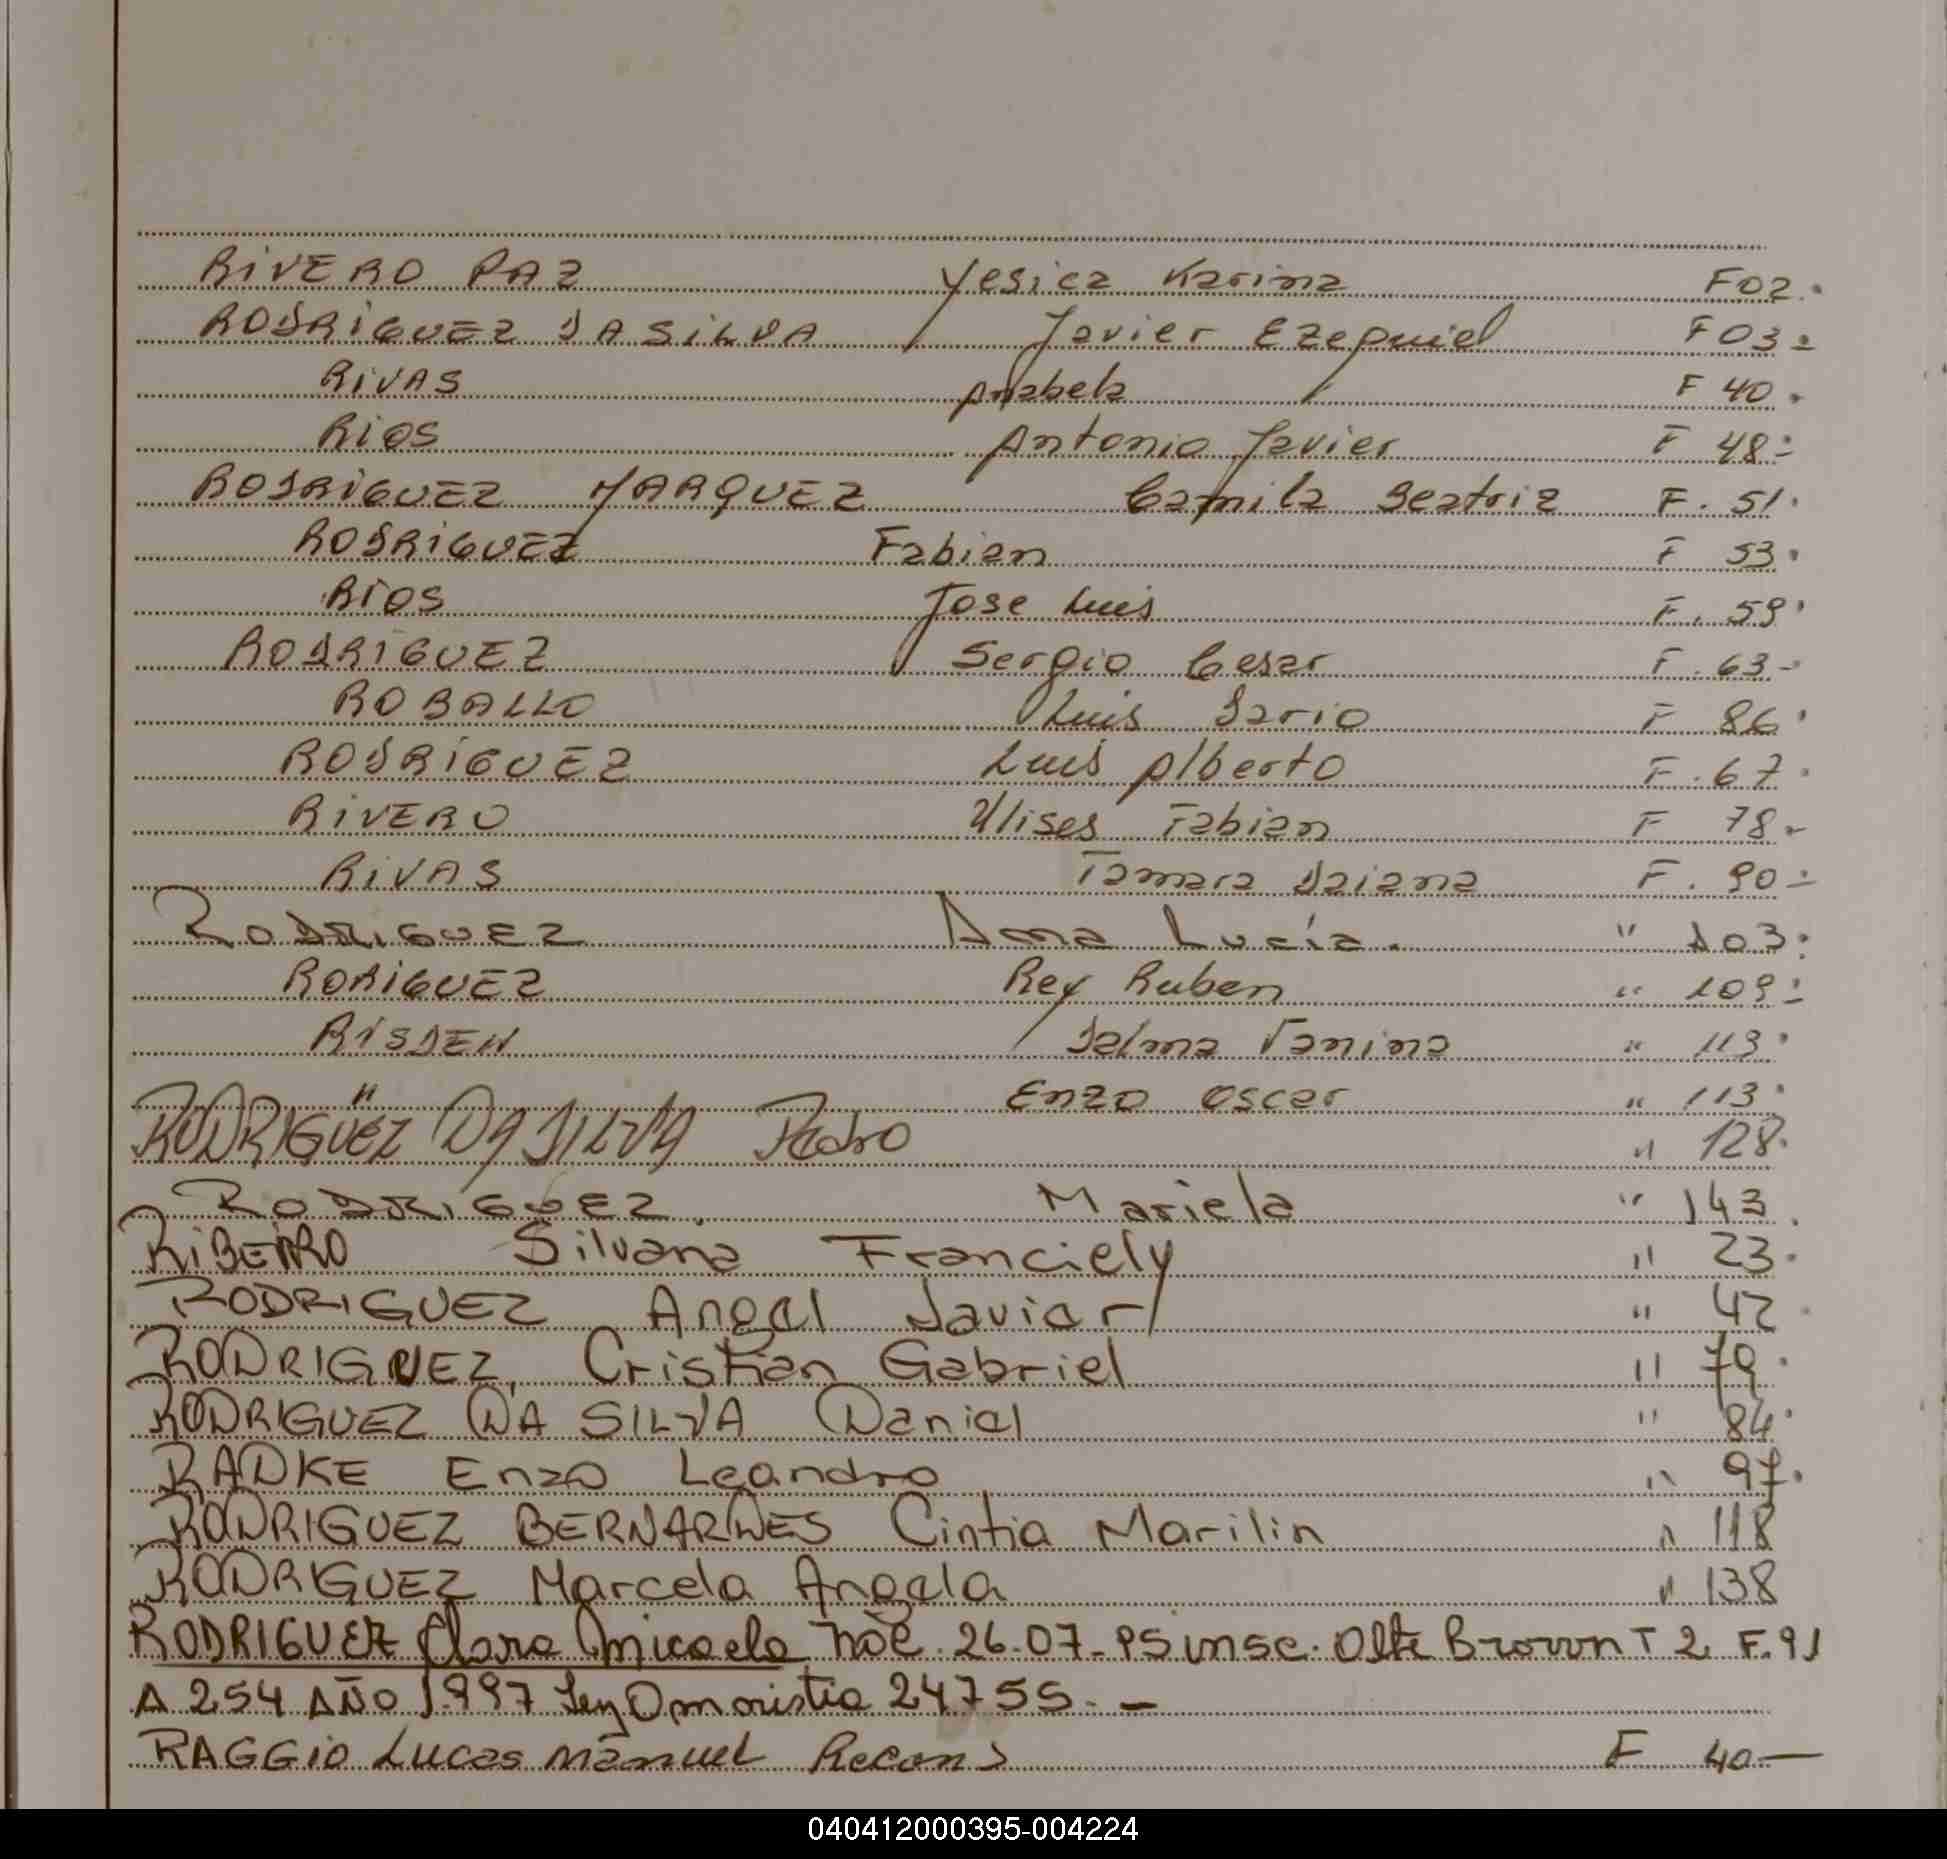 RIVERO PAZ Yesica Karina F 02.
RODRIGUEZ DA SILVA Javier Ezequiel F 03-
RIVAS Anabela F 40.
RIOS Antonio Javier F 48-
RODRIGUEZ MARQUEZ Camila Beatriz F. 51.
RODRIGUEZ Fabian F 53.
RIOS Jose Luis F. 59.
RODRIGUEZ Sergio Cesar F. 63-
ROBALLO Luis Dario F 86.
RODRIGUEZ Luis Alberto F. 67.
RIVERO Ulises Fabian F 78-
RIVAS Tamara Daiana F. 90-
RODRIGUEZ Ana Lucía. " 103.
RORIGUEZ Rey Ruben " 109-
RISDEN Dalma Vanina " 113.
" Enzo Oscar " 113.
RODRIGUEZ DA SILVA Pedro " 128.
RODRIGUEZ. Mariela " 143.
RIBEIRO Silvana Franciely " 23.
RODRIGUEZ Angel Javier " 42.
RODRIGUEZ, Cristian Gabriel " 79.
RODRIGUEZ DA SILVA Daniel " 84.
RADKE Enzo Leandro " 97.
RODRIGUEZ BERNARDES Cintia Marilin " 118
RODRIGUEZ Marcela Angela " 138
RODRIGUEZ Clara Micaela Nac. 26-07-95 insc. Alte Brown T 2 F. 91
A 254 AÑO 1.997 Ley Amnistia 24755. -
RAGGIO Lucas Manuel Recon F 40-
040412000395-004224